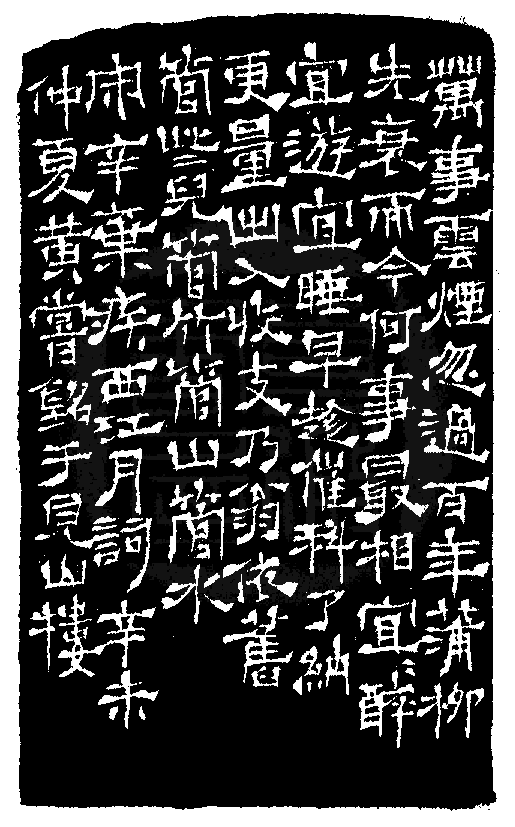 萬事雲煙忽過百年蒲柳
先衰而今何事最相宜〻醉
宜游宜睡早趁催科了納
更量出入收支乃翁依舊
管些兒管竹管山管水
宋辛棄疾西江月詞辛未
仲夏黃嘗銘于見山樓